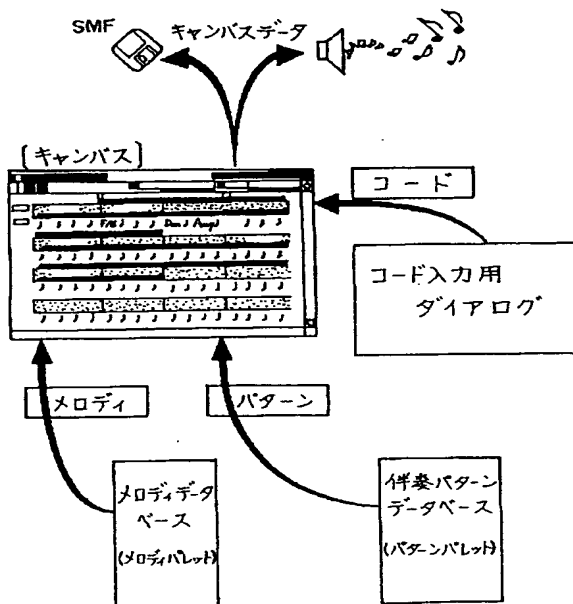 SMF
キャンバスデータ
[キャンバス]
コード
コード入力用
ダイアログ
メロディ
パターン
メロディデータ
ベース
(メロディパレット)
伴奏パターン
データベース
(パターンパレット)